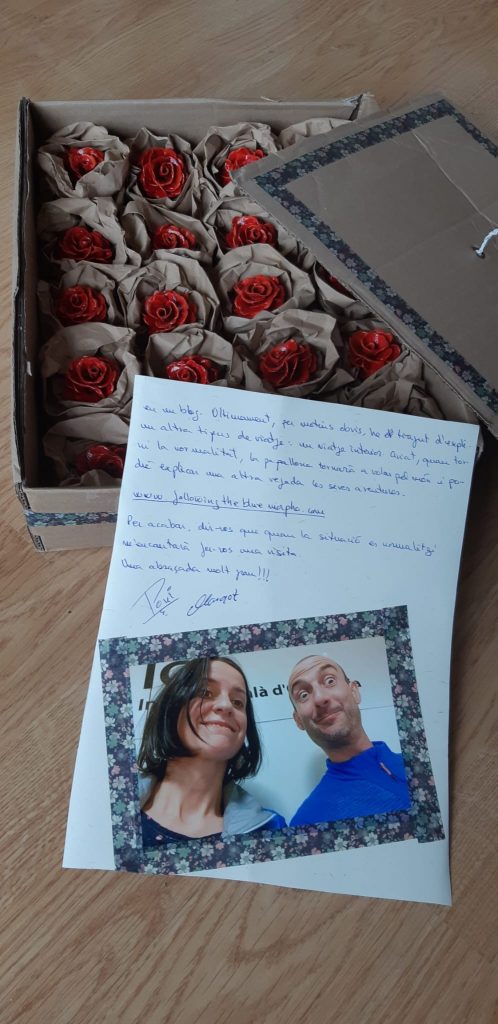 en un blog. Últimament, per motius obvis, he d' d'expli
un altre tipus de viatge: un viatge interior. Aviat, quan tor
ni la normalitat, la papallona tornarà a volar pel món i po
dré explicar una altra vegada les seves aventures.
www.followingthebluemorpho.com
Per acabar, dir-vos que quan la situació es normalitzi
m'encantarà fer-vos una visita.
Una abraçada molt gran!!!
Toni Margot
là d'